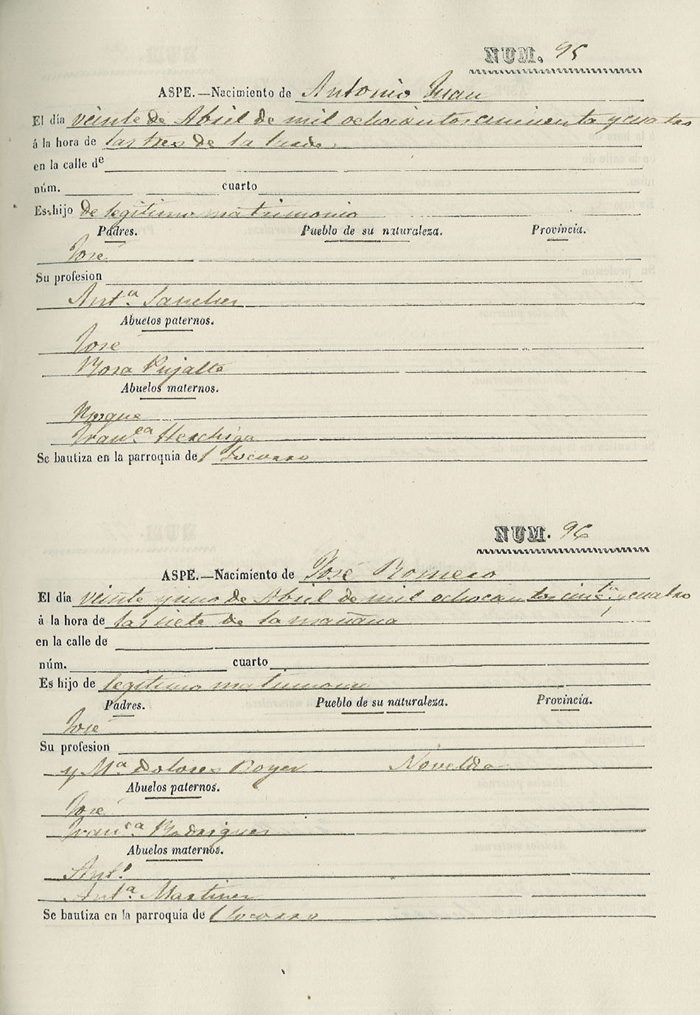 NUM. 95
ASPE.—Nacimiento de Antonio Juan
El dia veinte de Abril de mil ochocientos cincuenta y cuatro
á la hora de las tres de la tarde
en la calle de
núm. cuarto
Es hijo de legitimo matrimonio
Padres. Pueblo de su naturaleza. Provincia.
José
Su profesion
Ant.ª Sanchez
Abuelos paternos.
José
Rosa Pujalte
Abuelos maternos.
Roque
Fran.ca
Se bautiza en la parroquia de l Socorro
NUM. 96
ASPE.—Nacimiento de José Romero
El dia veinte y uno de Abril de mil ochocientos cinc.ta y cuatro
á la hora de las siete de la mañana
en la calle de
núm. cuarto
Es hijo de legitimo matrimonio
Padres. Pueblo de su naturaleza. Provincia.
José
Su profesion
y M.ª Dolores Boyer Novelda
Abuelos paternos.
José
Fran.ca Rodriguez
Abuelos maternos.
Ant.º
Ant.ª Martinez
Se bautiza en la parroquia de l Socorro